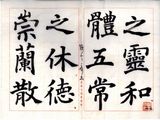 之靈和
體五常
之休德
崇蘭散